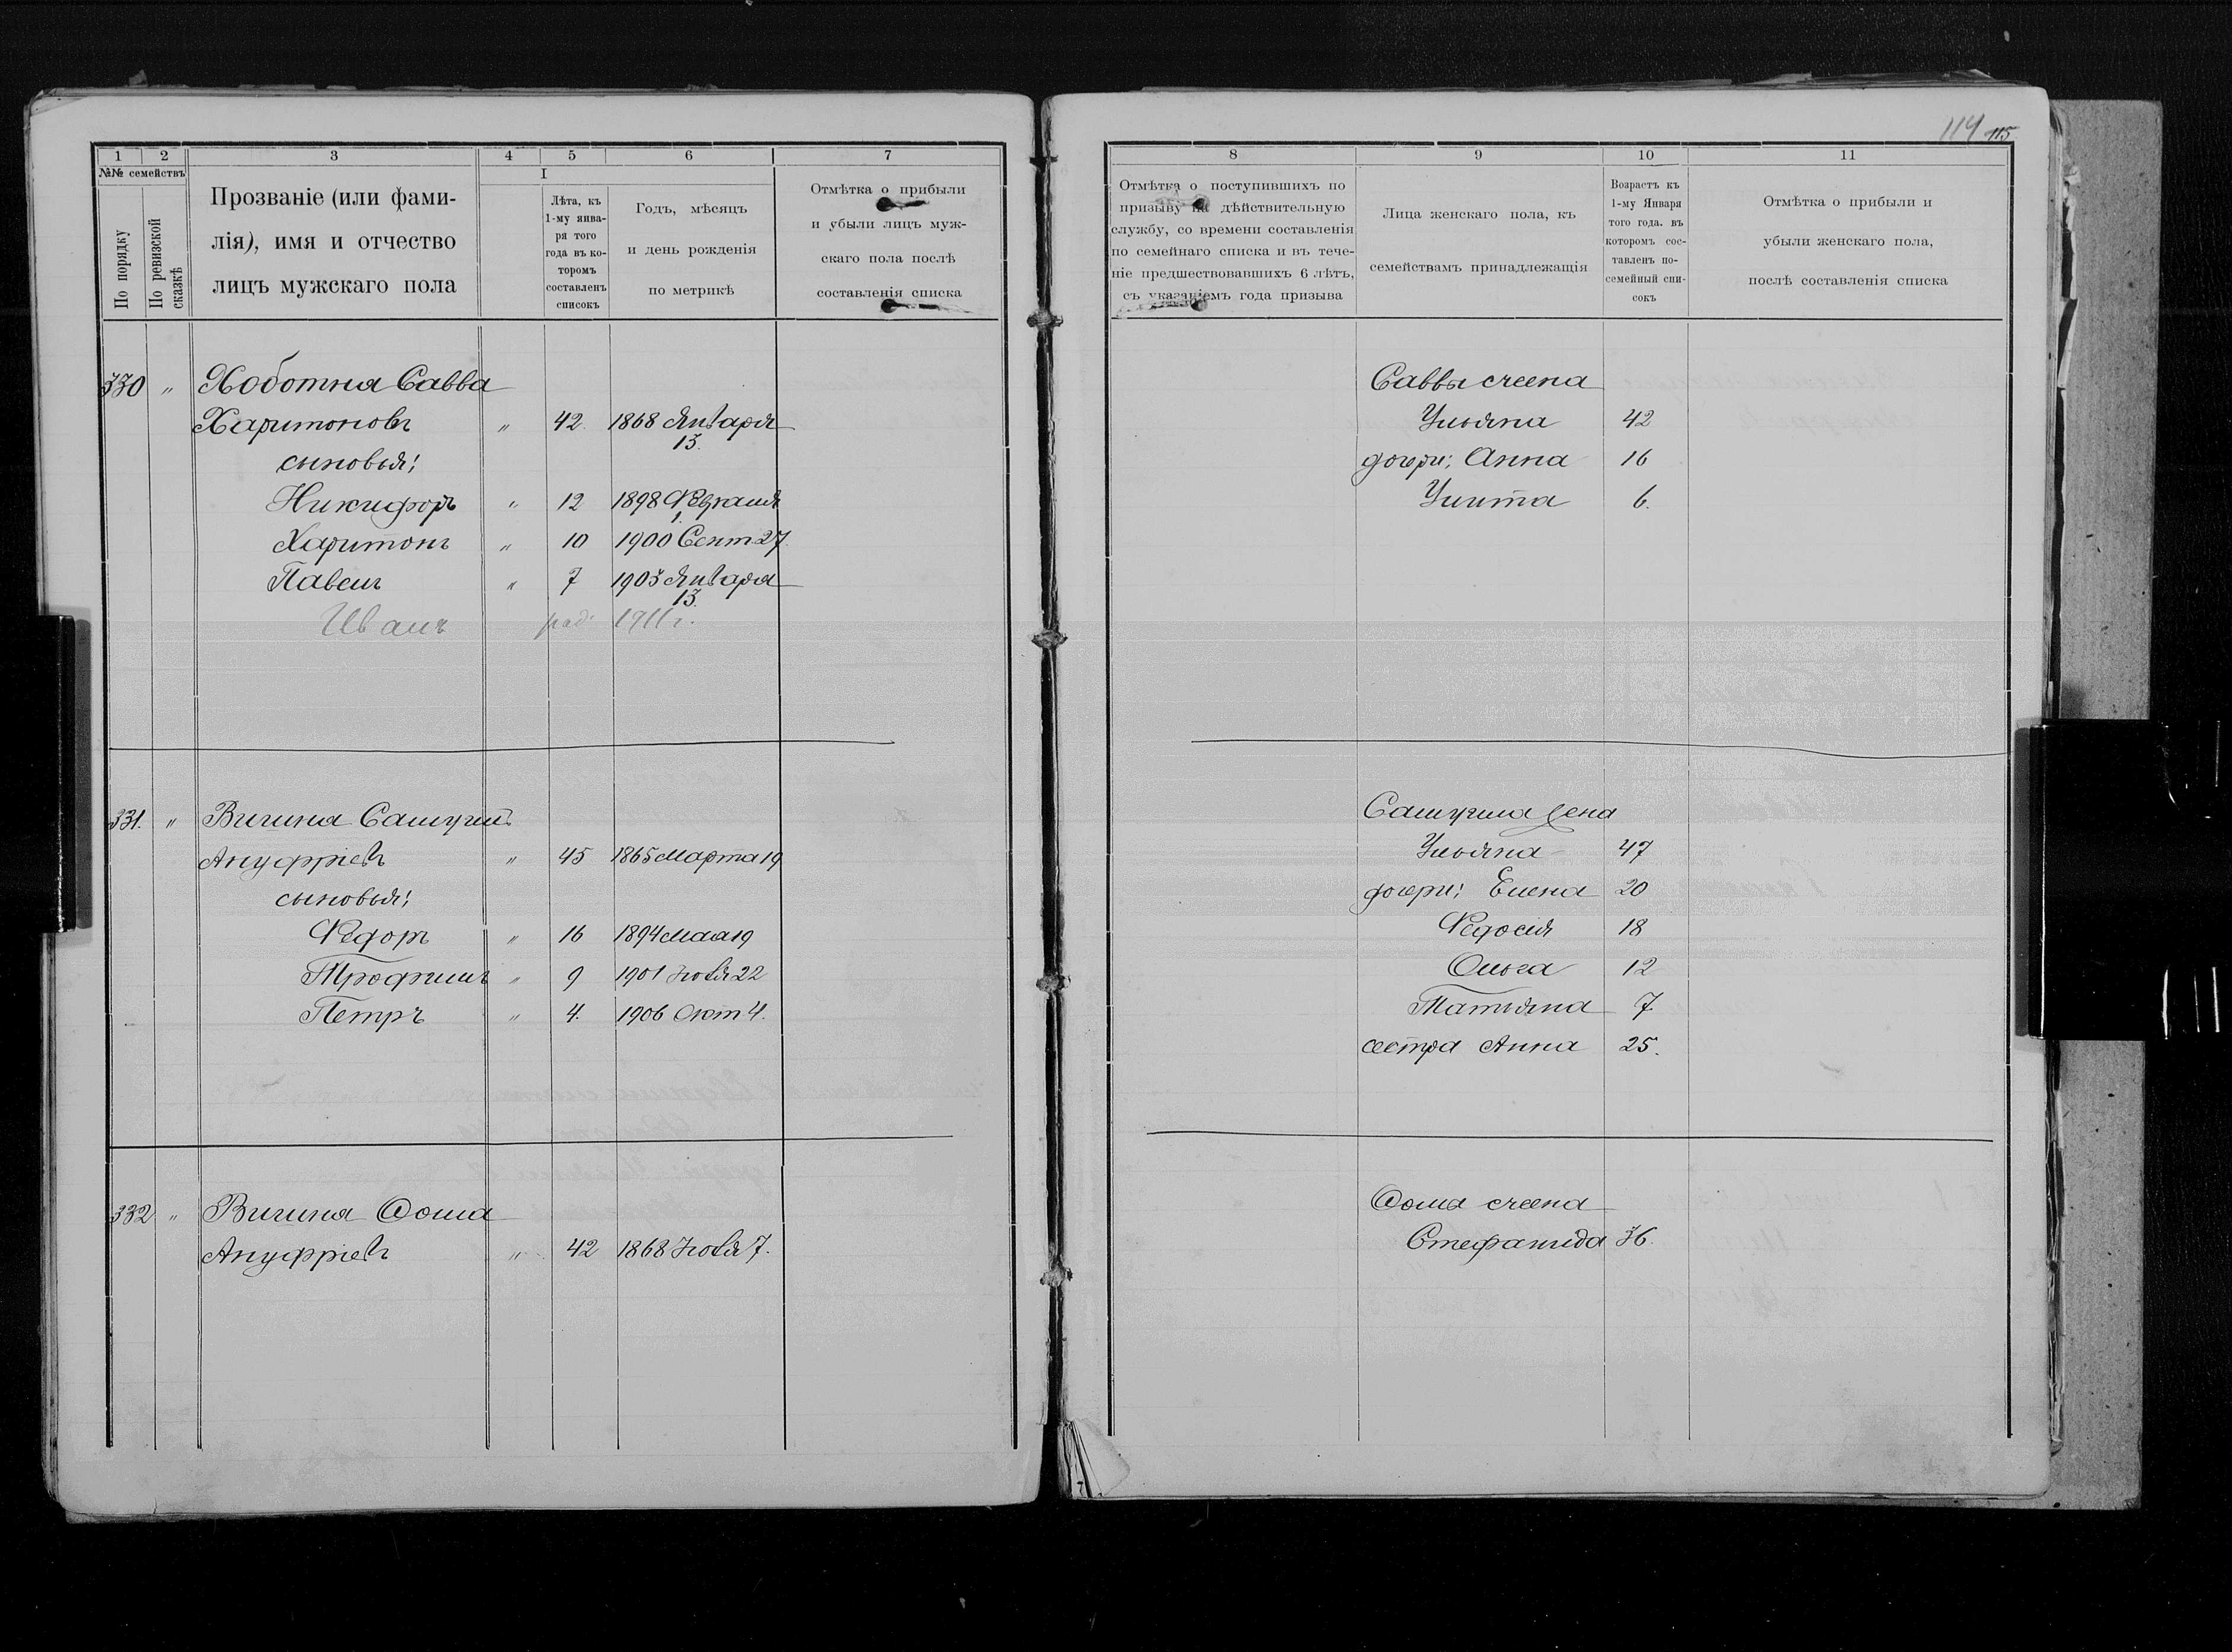 114 115
1 2 3 4 5 6 7
№№ семействъ
По порядку
По ревизской сказкѣ
Прозваніе (или фами-
лія), имя и отчество
лицъ мужскаго пола
I
Лѣта, къ
1-му янва-
ря того
года въ ко-
торомъ
составленъ
списокъ
Годъ, мѣсяцъ
и день рожденія
по метрикѣ
Отмѣтка о прибыли
и убыли лицъ муж-
скаго пола послѣ
составленія списка
330 " Хоботня Савва
Харитоновъ " 42 1868 Января
13.
сыновья:
Никифоръ " 12 1898 Февраля
1.
Харитонъ " 10 1900 Сент 27.
Павелъ " 7 1903 Января
13.
Иванъ род. 1911 г.
331. "
Ануфріевъ " 45 1865 Марта 19
сыновья:
Федоръ " 16 1894 Мая 19
Трофимъ " 9 1901 22
Петръ " 4. 1906 Окт 4.
332 " Фома
Ануфріевъ " 42 1868 7.
8 9 10 11
Отмѣтка о поступившихъ по
призыву на дѣйствительную
службу, со времени составленія
по семейнаго списка и въ тече-
ніе предшествовавшихъ 6 лѣтъ,
съ указаніемъ года призыва
Лица женскаго пола, къ
семействамъ принадлежащія
Возрастъ къ
1-му Января
того года. въ
которомъ сос-
тавленъ по-
семейный спи-
сокъ
Отмѣтка о прибыли и
убыли женскаго пола,
послѣ составленія списка
Саввы жена
Ульяна 42
дочери: Анна 16
Улита 6.
жена
Ульяна 47
дочери: Елена 20
Федосія 18
Ольга 12
Татьяна 7.
сестра Анна 25.
Фомы жена
Стефанида 36.